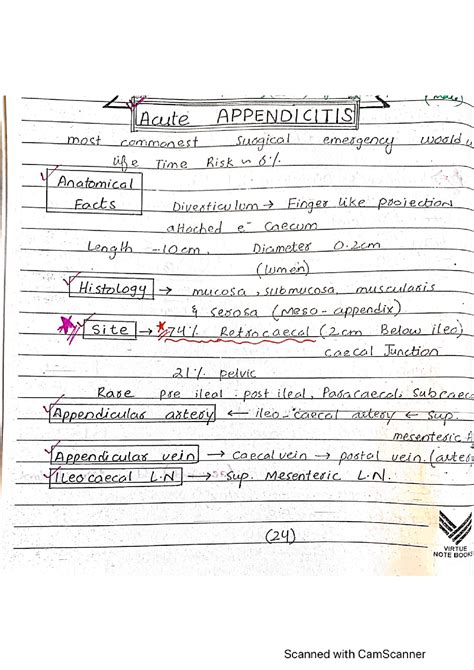 (male)
Acute APPENDICITIS
most commonest surgical emergency world w
life Time Risk ~ 6%
Anatomical
Facts
Diverticulum → Finger like projection
attached e- Caecum
Length -10cm, Diameter 0.2cm
(lumen)
Histology → mucosa, submucosa, muscularis
& serosa (Meso-appendix)
Site → 74% Retrocaecal (2cm Below ileo)
caecal Junction
21% pelvic
Rare pre ileal, post ileal, Paracaecal, Subcaec
Appendicular artery ← ileo-caecal artery ← Sup.
mesenteric
Appendicular vein → caecal vein → postal vein. (artery
Ileocaecal L.N → Sup. Mesenteric L.N.
(24)
VIRTUE
NOTE BOOKS
Scanned with CamScanner